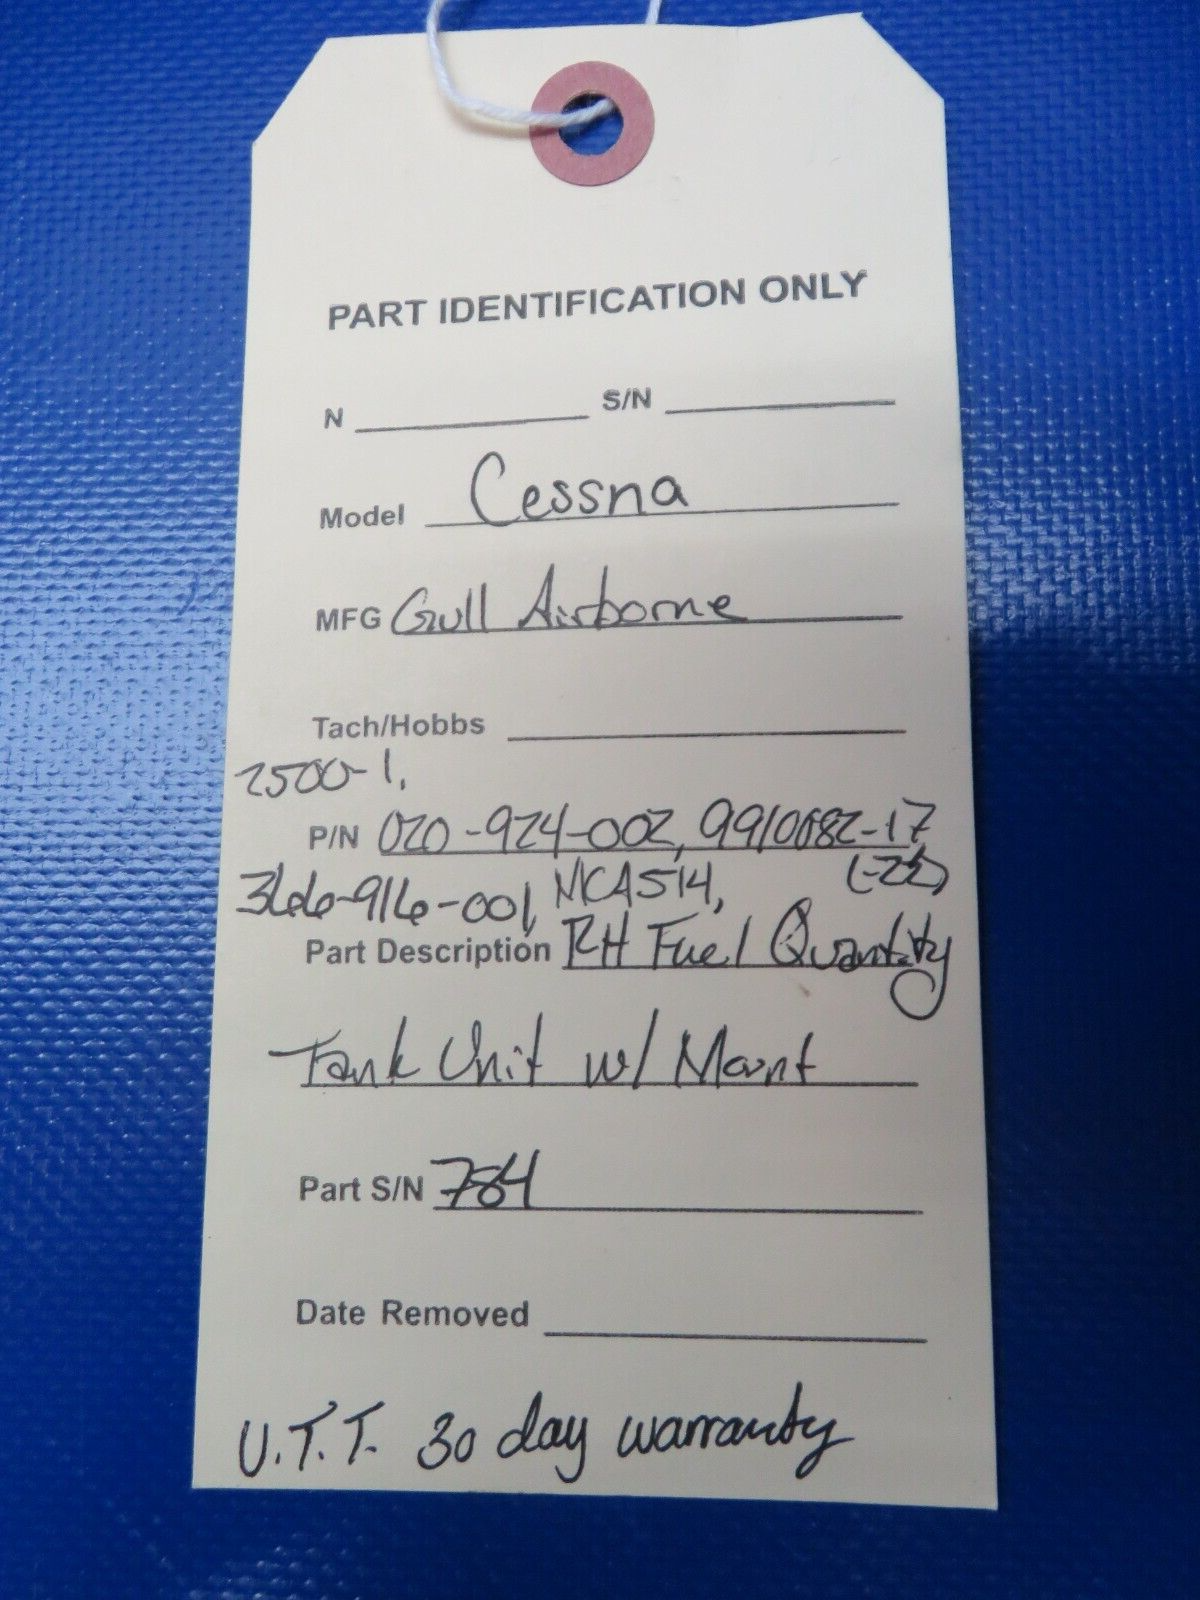 PART IDENTIFICATION ONLY
N S/N
Model Cessna
MFG Gull Airborne
Tach/Hobbs
2500-1,
P/N 020-924-002, 9910082-17
(-22)
366-916-001, MCA514,
Part Description RH Fuel Quantity
Tank Unit w/ Mount
Part S/N 784
Date Removed
U.T.T. 30 day warranty